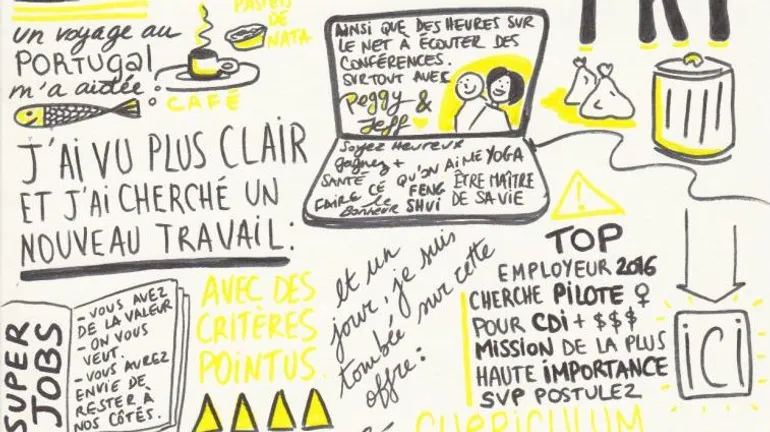 un voyage au
PORTUGAL
m'a aidée :
PASTEL
DE
NATA
CAFÉ
AINSI QUE DES HEURES SUR
LE NET À ÉCOUTER DES
CONFÉRENCES.
SURTOUT AVEC
Peggy &
Jeff
J'AI VU PLUS CLAIR
ET J'AI CHERCHÉ UN
NOUVEAU TRAVAIL :
Soyez Heureux
Gagnez +
SANTÉ
FAIRE CE QU'ON AIME
YOGA
FENG
SHUI
le
Bonheur
ÊTRE MAÎTRE
DE SA VIE
SUPER
JOBS
- VOUS AVEZ
DE LA VALEUR
- ON VOUS
VEUT.
- VOUS AUREZ
ENVIE DE
RESTER À
NOS CÔTÉS.
AVEC DES
CRITÈRES
POINTUS.
et un
jour, je suis
tombée sur cette
offre :
TOP
EMPLOYEUR 2016
CHERCHE PILOTE ♀
POUR CDi + $$$
MISSION DE LA PLUS
HAUTE IMPORTANCE
SVP POSTULEZ
iCi
CURRICULUM